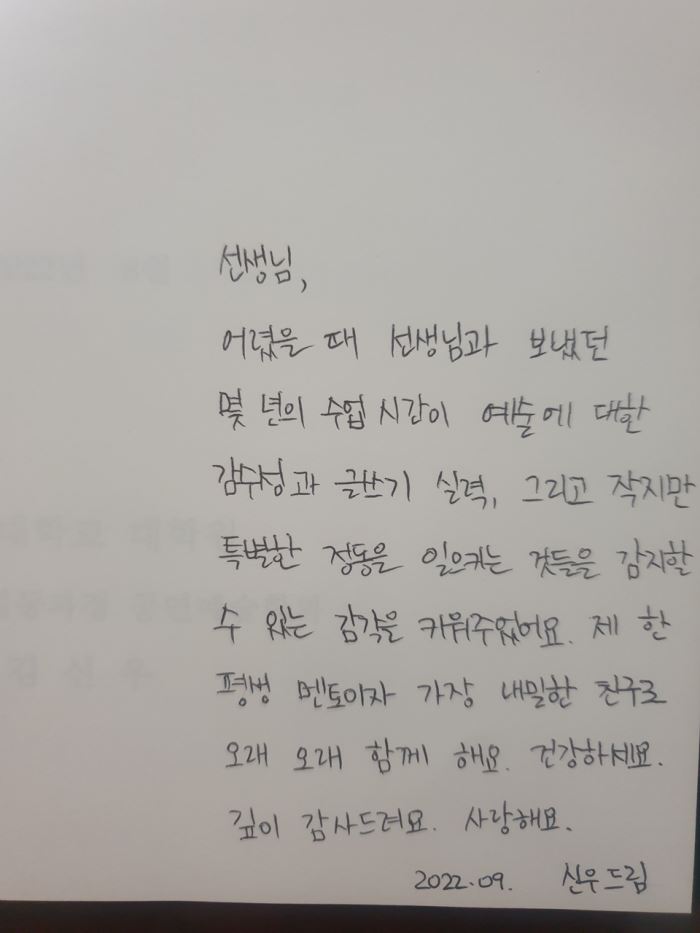 선생님,
어렸을 때 선생님과 보냈던
몇 년의 수업 시간이 예술에 대한
감수성과 글쓰기 실력, 그리고 작지만
특별한 정동을 일으키는 것들을 감지할
수 있는 감각을 키워주었어요. 제 한
평생 멘토이자 가장 내밀한 친구로
오래 오래 함께 해요. 건강하세요.
깊이 감사드려요. 사랑해요.
2022.09. 신우 드림